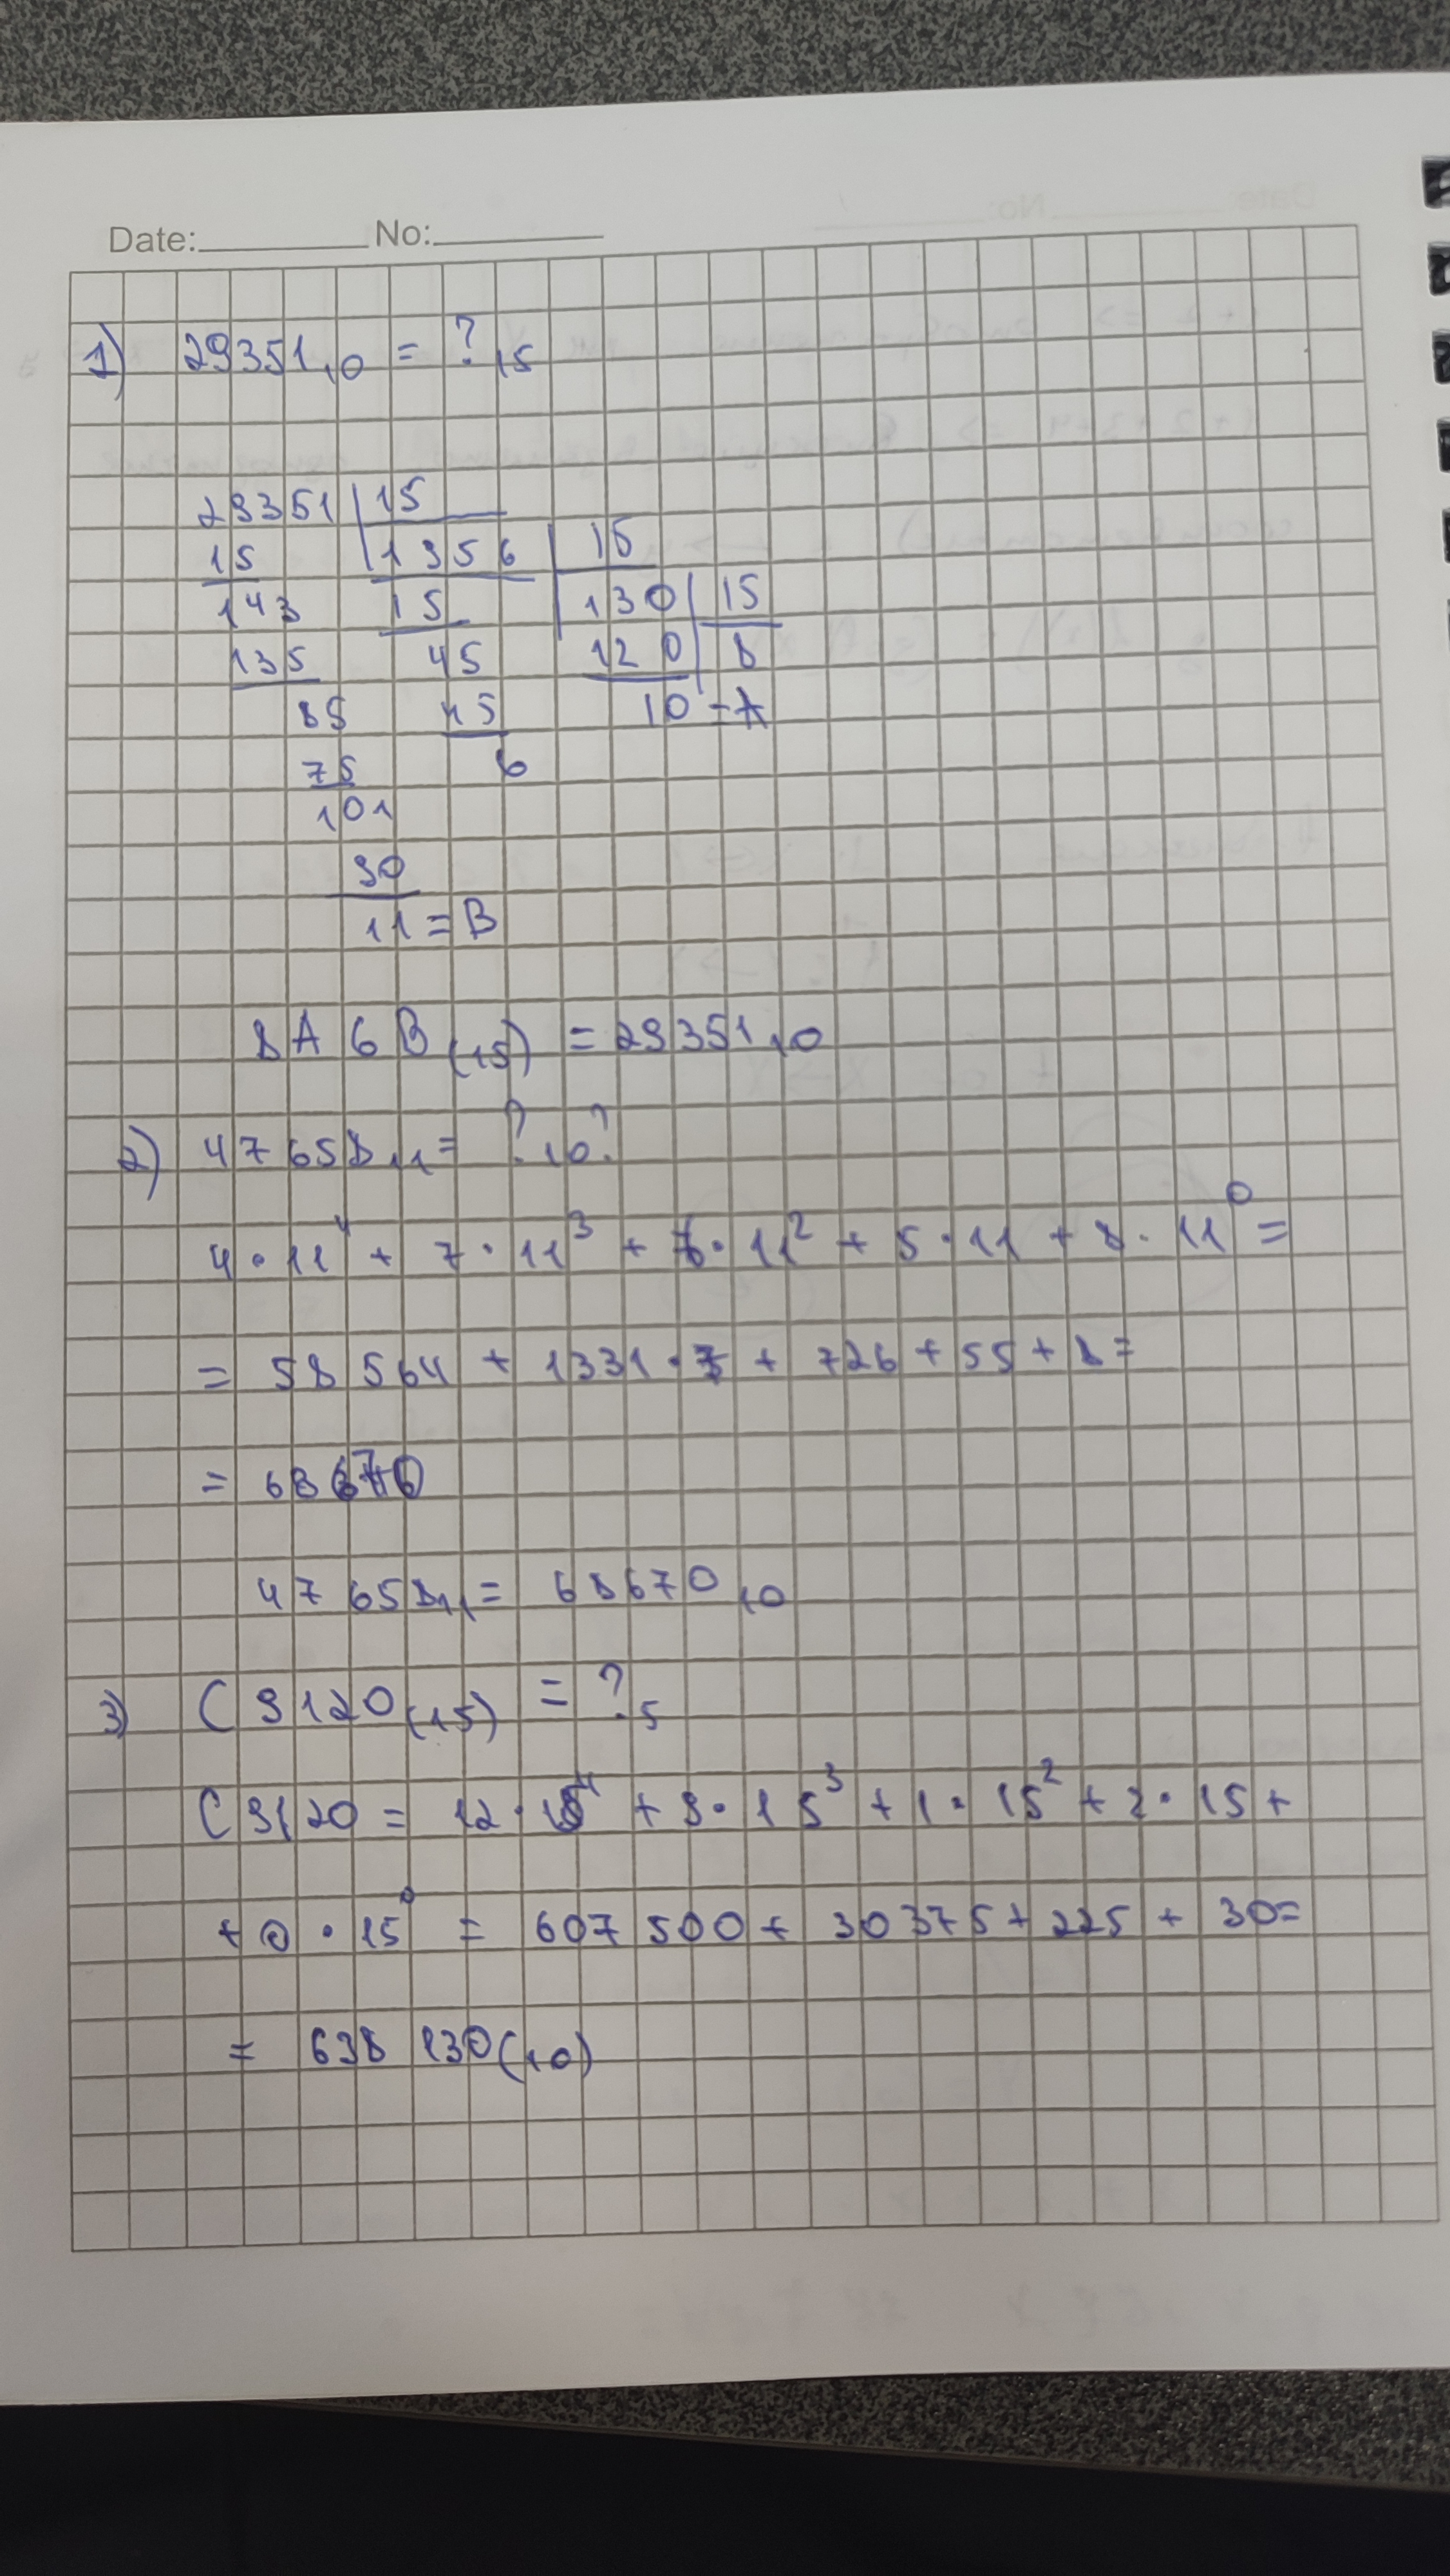 Date: No:
1) 29351₁₀ = ?₁₅
29351 15
15 1956 15
143 15 130 15
135 45 120 8
85 45 10 = A
75 6
101
90
11 = B
8A6B₍₁₅₎ = 29351₁₀
2) 47658₁₁ = ?₁₀?
4 · 11⁴ + 7 · 11³ + 6 · 11² + 5 · 11 + 8 · 11⁰ =
= 58564 + 1331 · 7 + 726 + 55 + 8 =
= 68670
47658₁₁ = 68670₁₀
3) C9120₍₁₅₎ = ?₅
C9120 = 12 · 15⁴ + 9 · 15³ + 1 · 15² + 2 · 15 +
+ 0 · 15⁰ = 607500 + 30375 + 225 + 30 =
= 638130₍₁₀₎